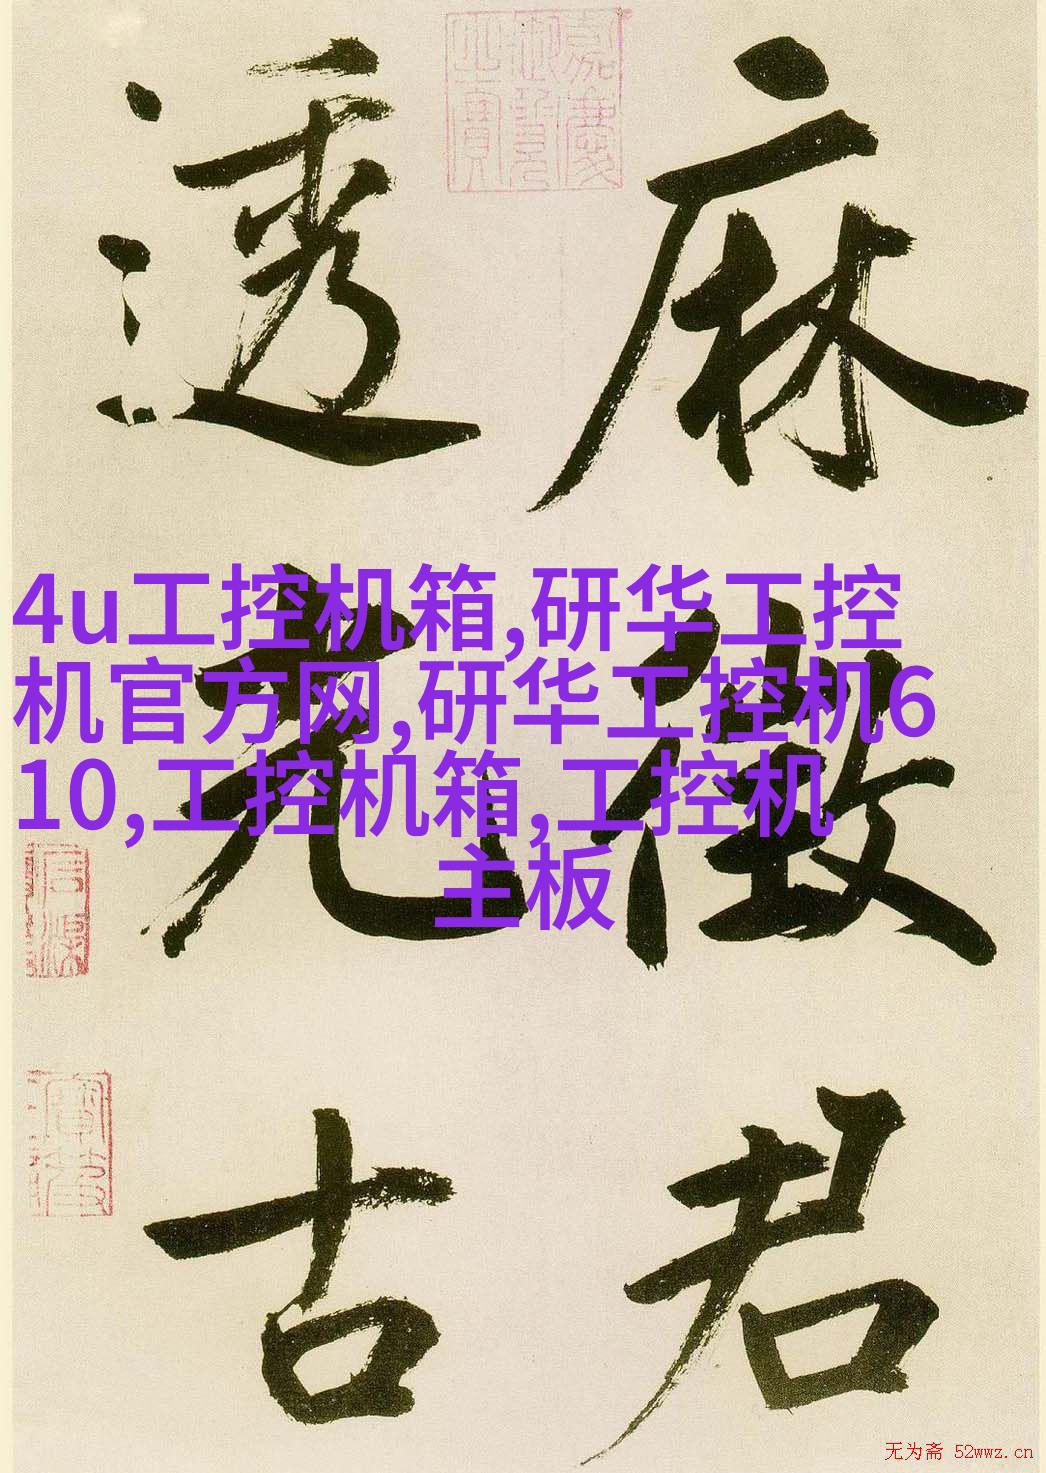 麻
徵
君
透
光
古
嘉慶
御覽
之寶
4u工控机箱,研华工控
机官方网,研华工控机6
10,工控机箱,工控机
主板
无为斋 52wwz.cn